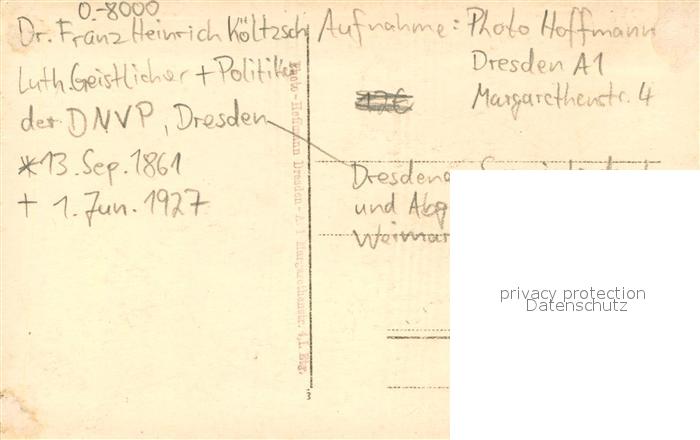 0.-8000
Dr. Franz Heinrich Költzsch
Luth. Geistlicher + Politiker
der DNVP, Dresden
* 13. Sep. 1861
+ 1. Jun. 1927
Aufnahme: Photo Hoffmann
Dresden A1
Margarethenstr. 4
12€
Dresdena
und Abg
Weimar
Photo-Hoffmann Dresden-A. 1 Margarethenstr. 4, I. Etg.
privacy protection
Datenschutz